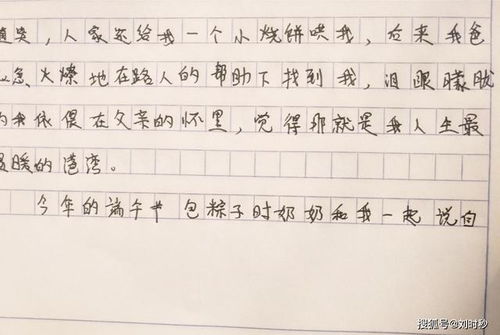 哭，人家还给我一个小烧饼哄我，后来我爸
急火燎地在路人的帮助下找到我，泪眼朦胧
的我依偎在父亲的怀里，觉得那就是我人生最
暖的港湾。
今年的端午节 包粽子时奶奶和我一起 说白
搜狐号@刘时秒